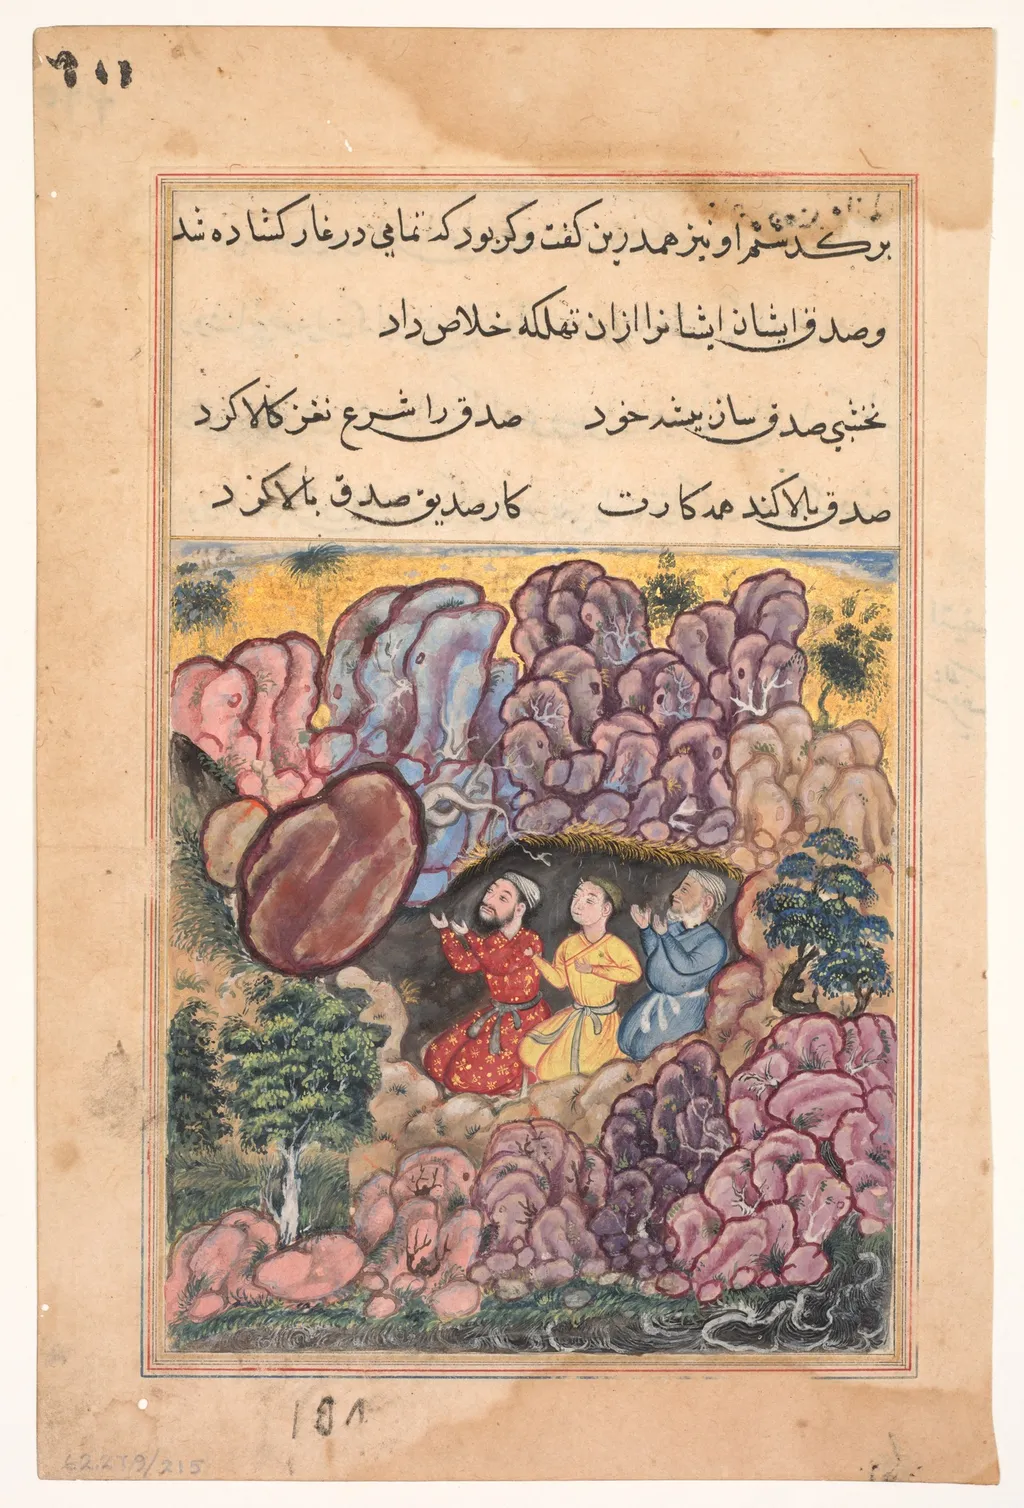 برگذشتم او نیز همدرین گفت و کو بود که تمامی در غار کشاده شد
و صدق ایشان ایشانرا ازان تهلکه خلاص داد
نخشبی صدق سان پیشه خود صدق را شرع نغز کالا کرد
صدق بالا کند همه کارت کار صدیق صدق بالا کرد
62.279/215